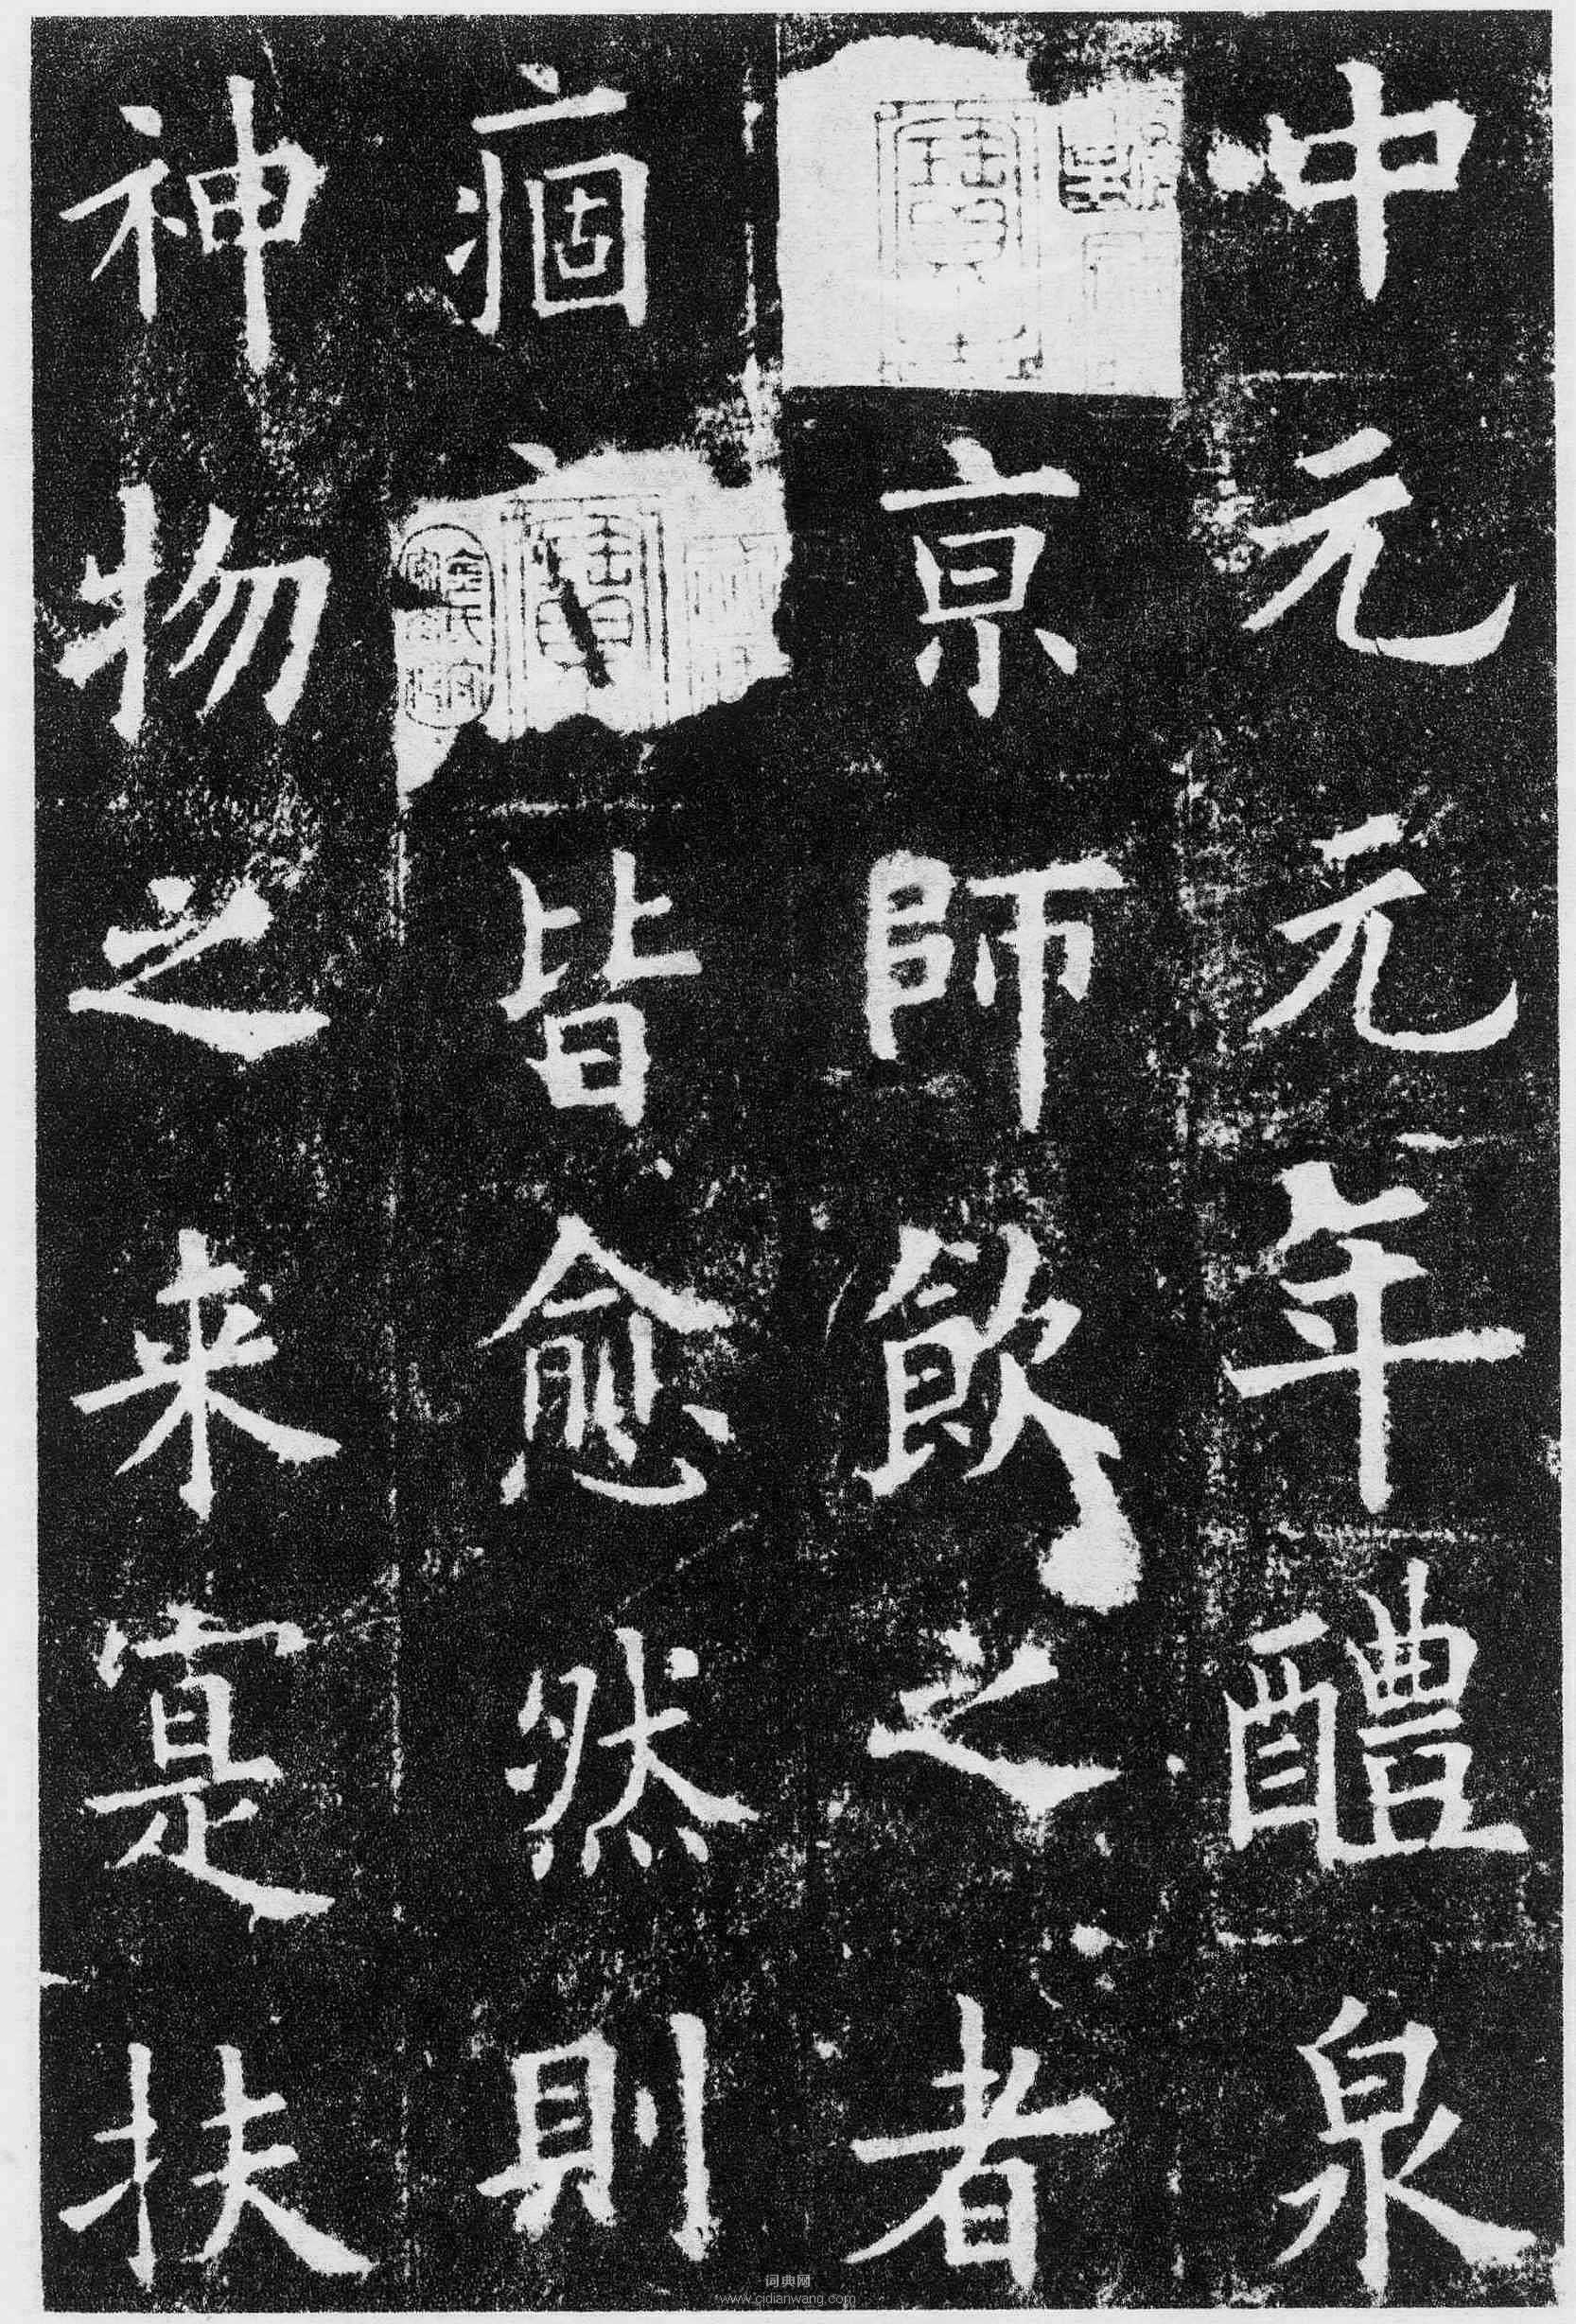 中元元年醴泉
亰師飲之者
痼皆愈然則
神物之来寔扶
词典网
www.cidianwang.com